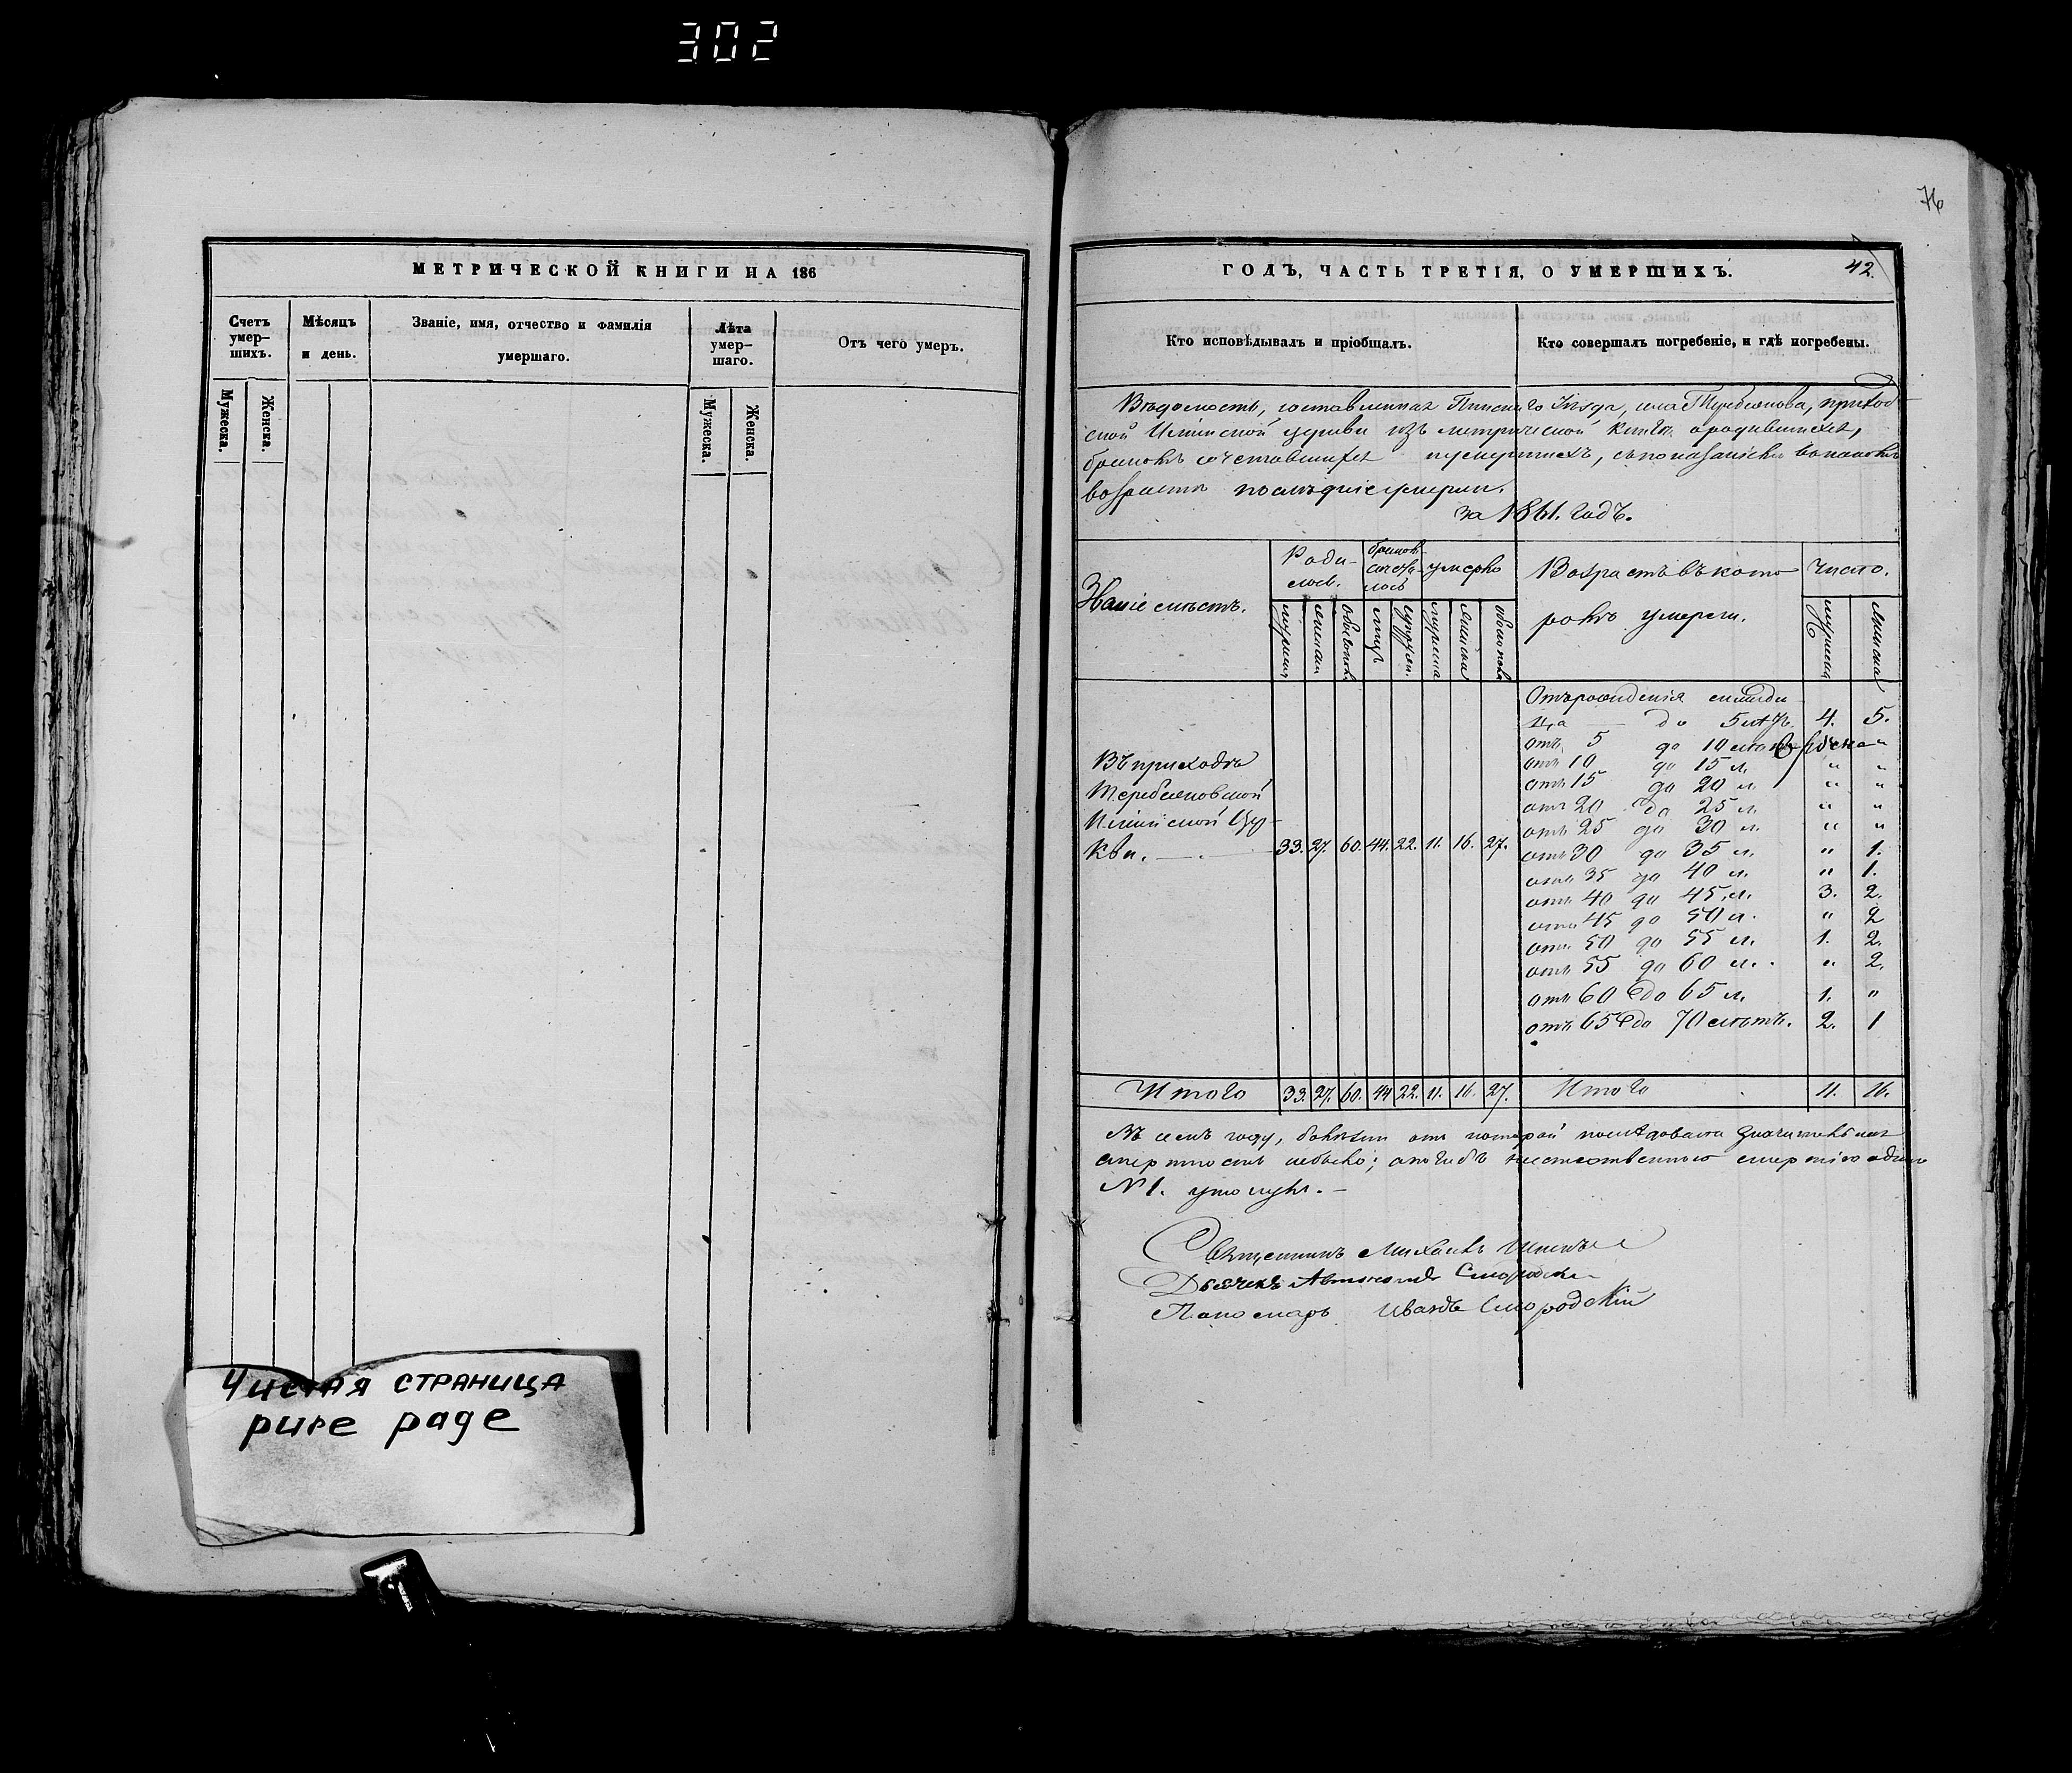 302
МЕТРИЧЕСКОЙ КНИГИ НА 186
Счетъ умер-
шихъ.
Мѣсяцъ
и день.
Званіе, имя, отчество и фамилія
умершаго.
Лѣта
умер-
шаго.
Отъ чего умеръ.
Мужеска.
Женска.
Мужеска.
Женска.
Чистая страница
pure page
76
ГОДЪ, ЧАСТЬ ТРЕТІЯ, О УМЕРШИХЪ.
42.
Кто исповѣдывалъ и пріобщалъ.
Кто совершалъ погребеніе, и гдѣ погребены.
Вѣдомость, составленная Пинскаго Уѣзда, села, приход-
ской церкви изъ метрической книги о родившихся,
бракомъ сочетавшихся и умершихъ, съ показаніемъ въ какомъ
возрастѣ послѣдніе умерли.
за 1861. годъ.
Званіе мѣстъ.
Роди-
лось.
браком.
сочета-
лось
умерло
Возрастъ въ кото-
ромъ умерли.
Число.
Отъ рожденія
до 5 лѣтъ 4. 5.
отъ 5 до 10
отъ 10 до 15 л. " "
отъ 15 до 20 л. " "
отъ 20 до 25 л. " "
отъ 25 до 30 л. " "
отъ 30 до 35 л. " 1.
отъ 35 до 40 л. " 1.
отъ 40 до 45 л. 3. 2.
отъ 45 до 50 л. " 2
отъ 50 до 55 л. 1. 2.
отъ 55 до 60 л. " 2.
отъ 60 до 65 л. 1. "
отъ 65 до 70 лѣтъ. 2. 1
Въ приходѣ
Теребежовской
Цер-
кви. 33. 27. 60. 44. 22. 11. 16. 27.
Итого 33. 27. 60. 44 22. 11. 16. 27. Итого 11. 16.
Въ семъ году, болѣзни отъ которой послѣдовала значительная
смертность небыло; а погибъ неестественною смертію одинъ
N 1.
Священникъ Михаилъ
Дьячекъ
Пономарь Иванъ Смородскій